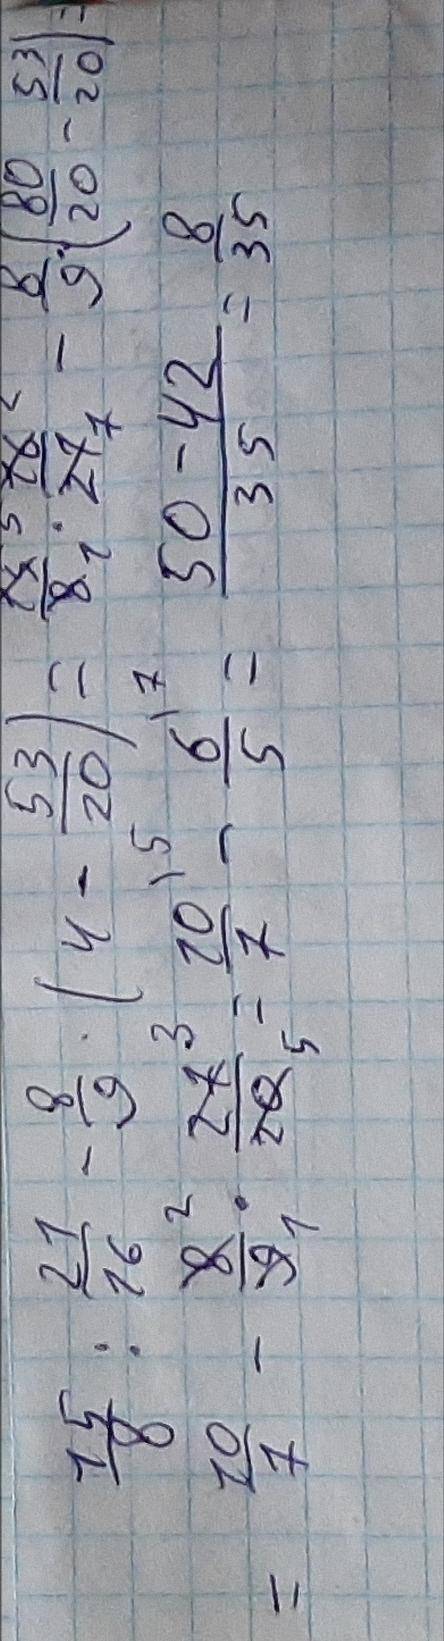 15/8 : 21/16 - 8/9 · (4 - 53/20) = 15⁵/8₁ · 16²/21₇ - 8/9 · (80/20 - 53/20) =
= 10/7 - 8²/9₁ · 27³/20₅ = 10/7 \5 - 6/5 \7 = 50-42/35 = 8/35